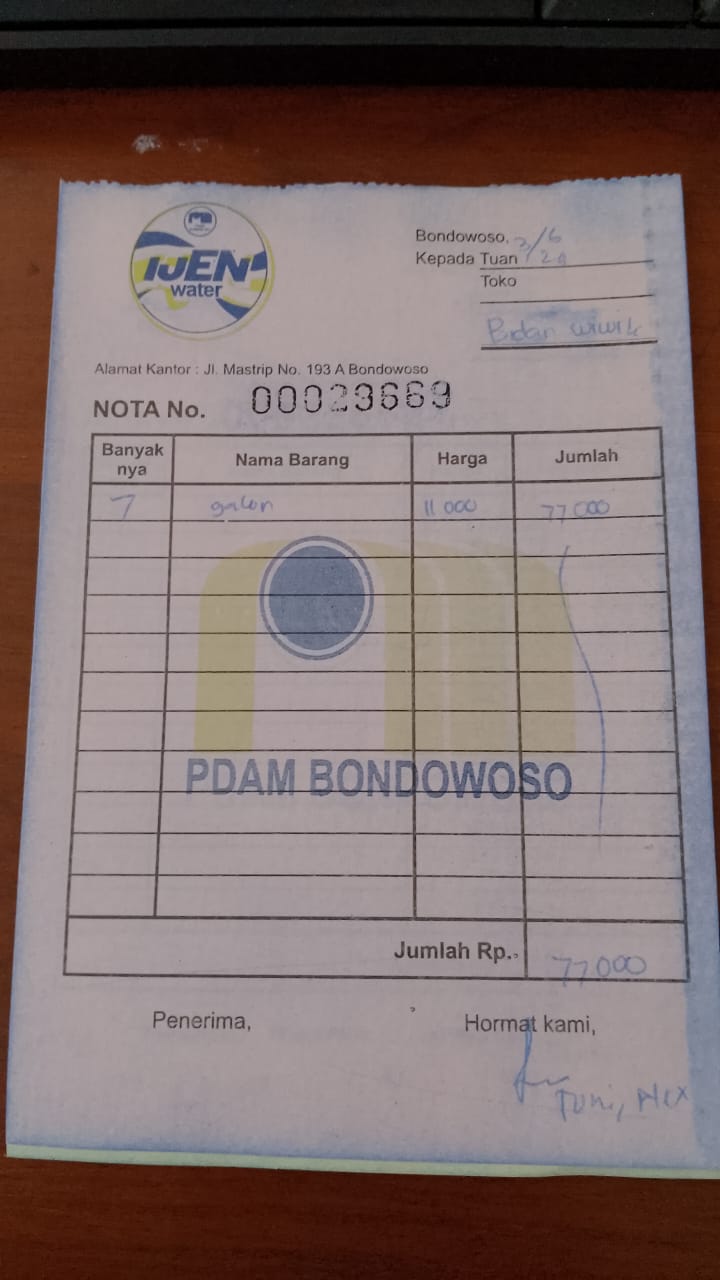 IJEN
water
Bondowoso, 3/6
Kepada Tuan
Toko
Bidan wiwik
Alamat Kantor : Jl. Mastrip No. 193 A Bondowoso
NOTA No. 00029669
Banyak nya Nama Barang Harga Jumlah
7 galon 11 000 77 000
PDAM BONDOWOSO
Jumlah Rp.. 77 000
Penerima, Hormat kami,